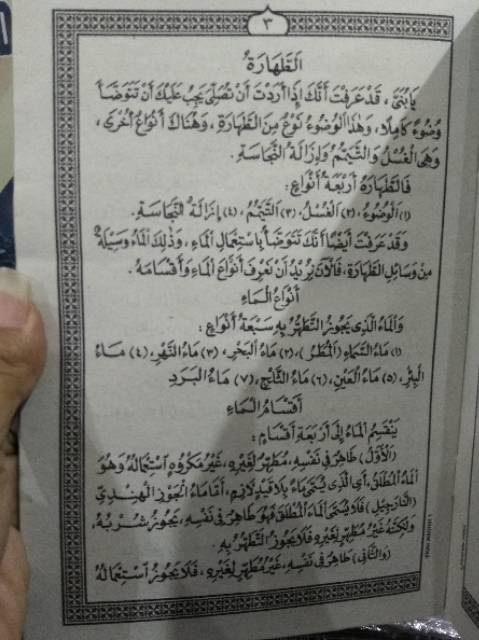 ٣
اَلطَّهَارَةُ
يَابُنَيَّ، قَدْ عَرَفْتَ أَنَّكَ إِذَا أَرَدْتَ أَنْ تُصَلِّيَ يَجِبُ عَلَيْكَ أَنْ تَتَوَضَّأَ
وُضُوْءً كَامِلًا، وَهٰذَا الْوُضُوْءُ نَوْعٌ مِنَ الطَّهَارَةِ، وَهُنَاكَ أَنْوَاعٌ أُخْرَى،
وَهِيَ الْغُسْلُ وَالتَّيَمُّمُ وَإِزَالَةُ النَّجَاسَةِ.
فَالطَّهَارَةُ أَرْبَعَةُ أَنْوَاعٍ:
(١) اَلْوُضُوْءُ، (٢) اَلْغُسْلُ، (٣) اَلتَّيَمُّمُ، (٤) إِزَالَةُ النَّجَاسَةِ.
وَقَدْ عَرَفْتَ أَيْضًا أَنَّكَ تَتَوَضَّأُ بِاسْتِعْمَالِ الْمَاءِ، وَذٰلِكَ الْمَاءُ وَسِيْلَةٌ
مِنْ وَسَائِلِ الطَّهَارَةِ، فَالْآنَ نُرِيْدُ أَنْ نَعْرِفَ أَنْوَاعَ الْمَاءِ وَأَقْسَامَهُ.
أَنْوَاعُ الْمَاءِ
وَالْمَاءُ الَّذِي يَجُوْزُ التَّطَهُّرُ بِهِ سَبْعَةُ أَنْوَاعٍ:
(١) مَاءُ السَّمَاءِ (الْمَطَرُ)، (٢) مَاءُ الْبَحْرِ، (٣) مَاءُ النَّهْرِ، (٤) مَاءُ
الْبِئْرِ، (٥) مَاءُ الْعَيْنِ، (٦) مَاءُ الثَّلْجِ، (٧) مَاءُ الْبَرَدِ
أَقْسَامُ الْمَاءِ
يَنْقَسِمُ الْمَاءُ إِلَى أَرْبَعَةِ أَقْسَامٍ:
(اَلْأَوَّلُ) طَاهِرٌ فِي نَفْسِهِ، مُطَهِّرٌ لِغَيْرِهِ، غَيْرُ مَكْرُوْهٍ اسْتِعْمَالُهُ وَهُوَ
الْمَاءُ الْمُطْلَقُ، أَيِ الَّذِي يُسَمَّى مَاءً بِلَا قَيْدٍ لَازِمٍ، أَمَّا مَاءُ الْجَوْزِ الْهِنْدِيِّ
(النَّارَجِيْلِ) فَلَا يُسَمَّى الْمَاءَ الْمُطْلَقَ فَهُوَ طَاهِرٌ فِي نَفْسِهِ، يَجُوْزُ شُرْبُهُ،
وَلٰكِنَّهُ غَيْرُ مُطَهِّرٍ لِغَيْرِهِ فَلَا يَجُوْزُ التَّطَهُّرُ بِهِ.
(وَالثَّانِي) طَاهِرٌ فِي نَفْسِهِ، غَيْرُ مُطَهِّرٍ لِغَيْرِهِ، فَلَا يَجُوْزُ اسْتِعْمَالُهُ